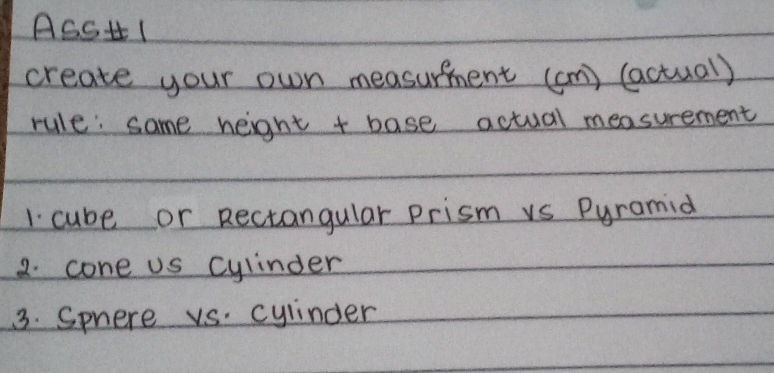 Ass#1
create your own measurment (cm) (actual)
rule: same height + base actual measurement
1. cube or Rectangular Prism vs Pyramid
2. cone vs cylinder
3. Sphere vs. cylinder